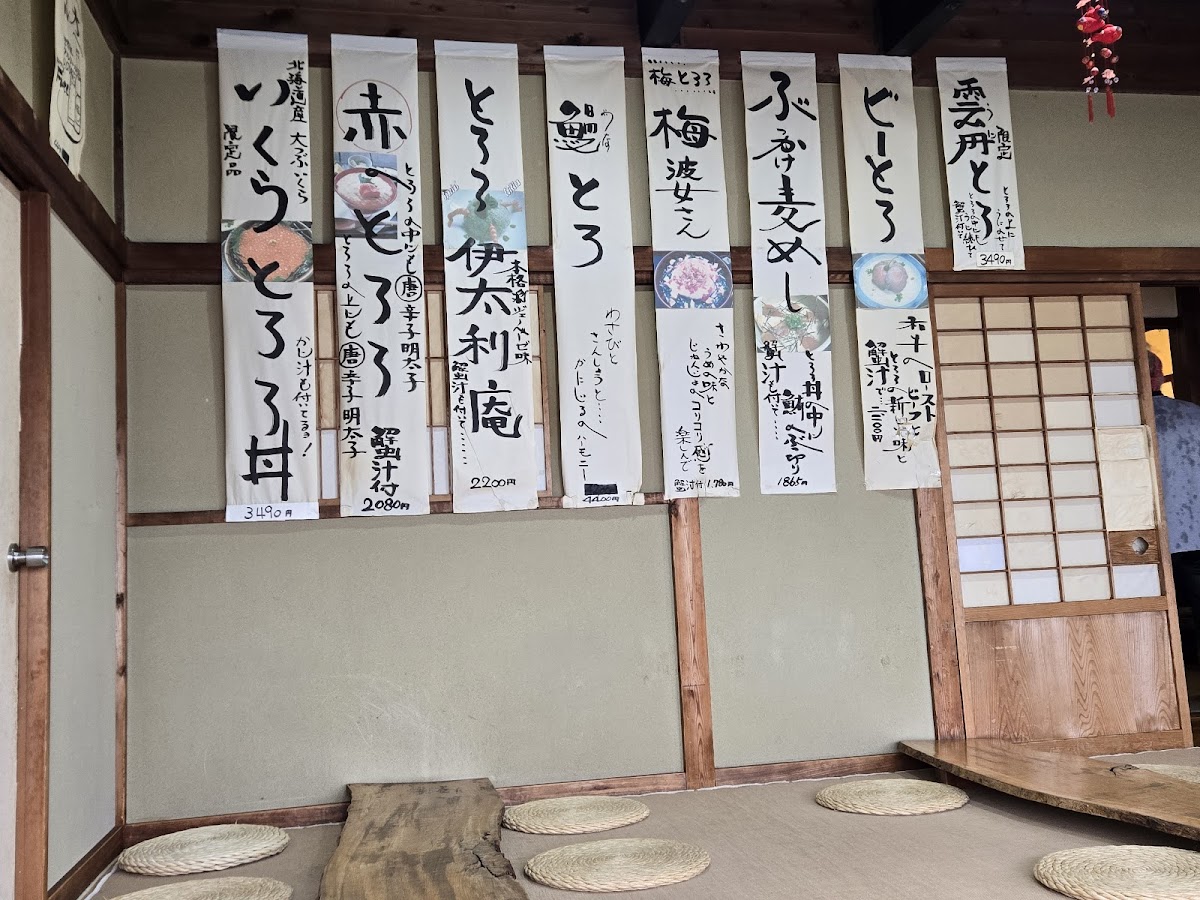 北海道産 大つぶいくら
いくらとろろ丼
限定品
かに汁も付いてるョ!
3490円
赤のとろろ
とろろの中にも唐辛子明太子
とろろの上にも唐辛子明太子
蟹汁付
2080円
とろろ伊太利庵
蟹汁も付いて……
2200円
うなとろ
わさびと
さんしょうと…
かにじるの
ハーモニー
4400円
梅とろろ
梅波女さん
さわやかな
うめの味と
コリコリ感を
楽しんで
蟹汁付 1,780円
ぶっかけ麦めし
とろろ丼の中に
蟹汁も付いて……
1865円
ビーとろ
和牛のロースト
ビーフと
とろろの新しい味と
蟹汁で…
雲丹とろ
うに
限定
とろろの上に
うにのせて
蟹汁付いて
3490円